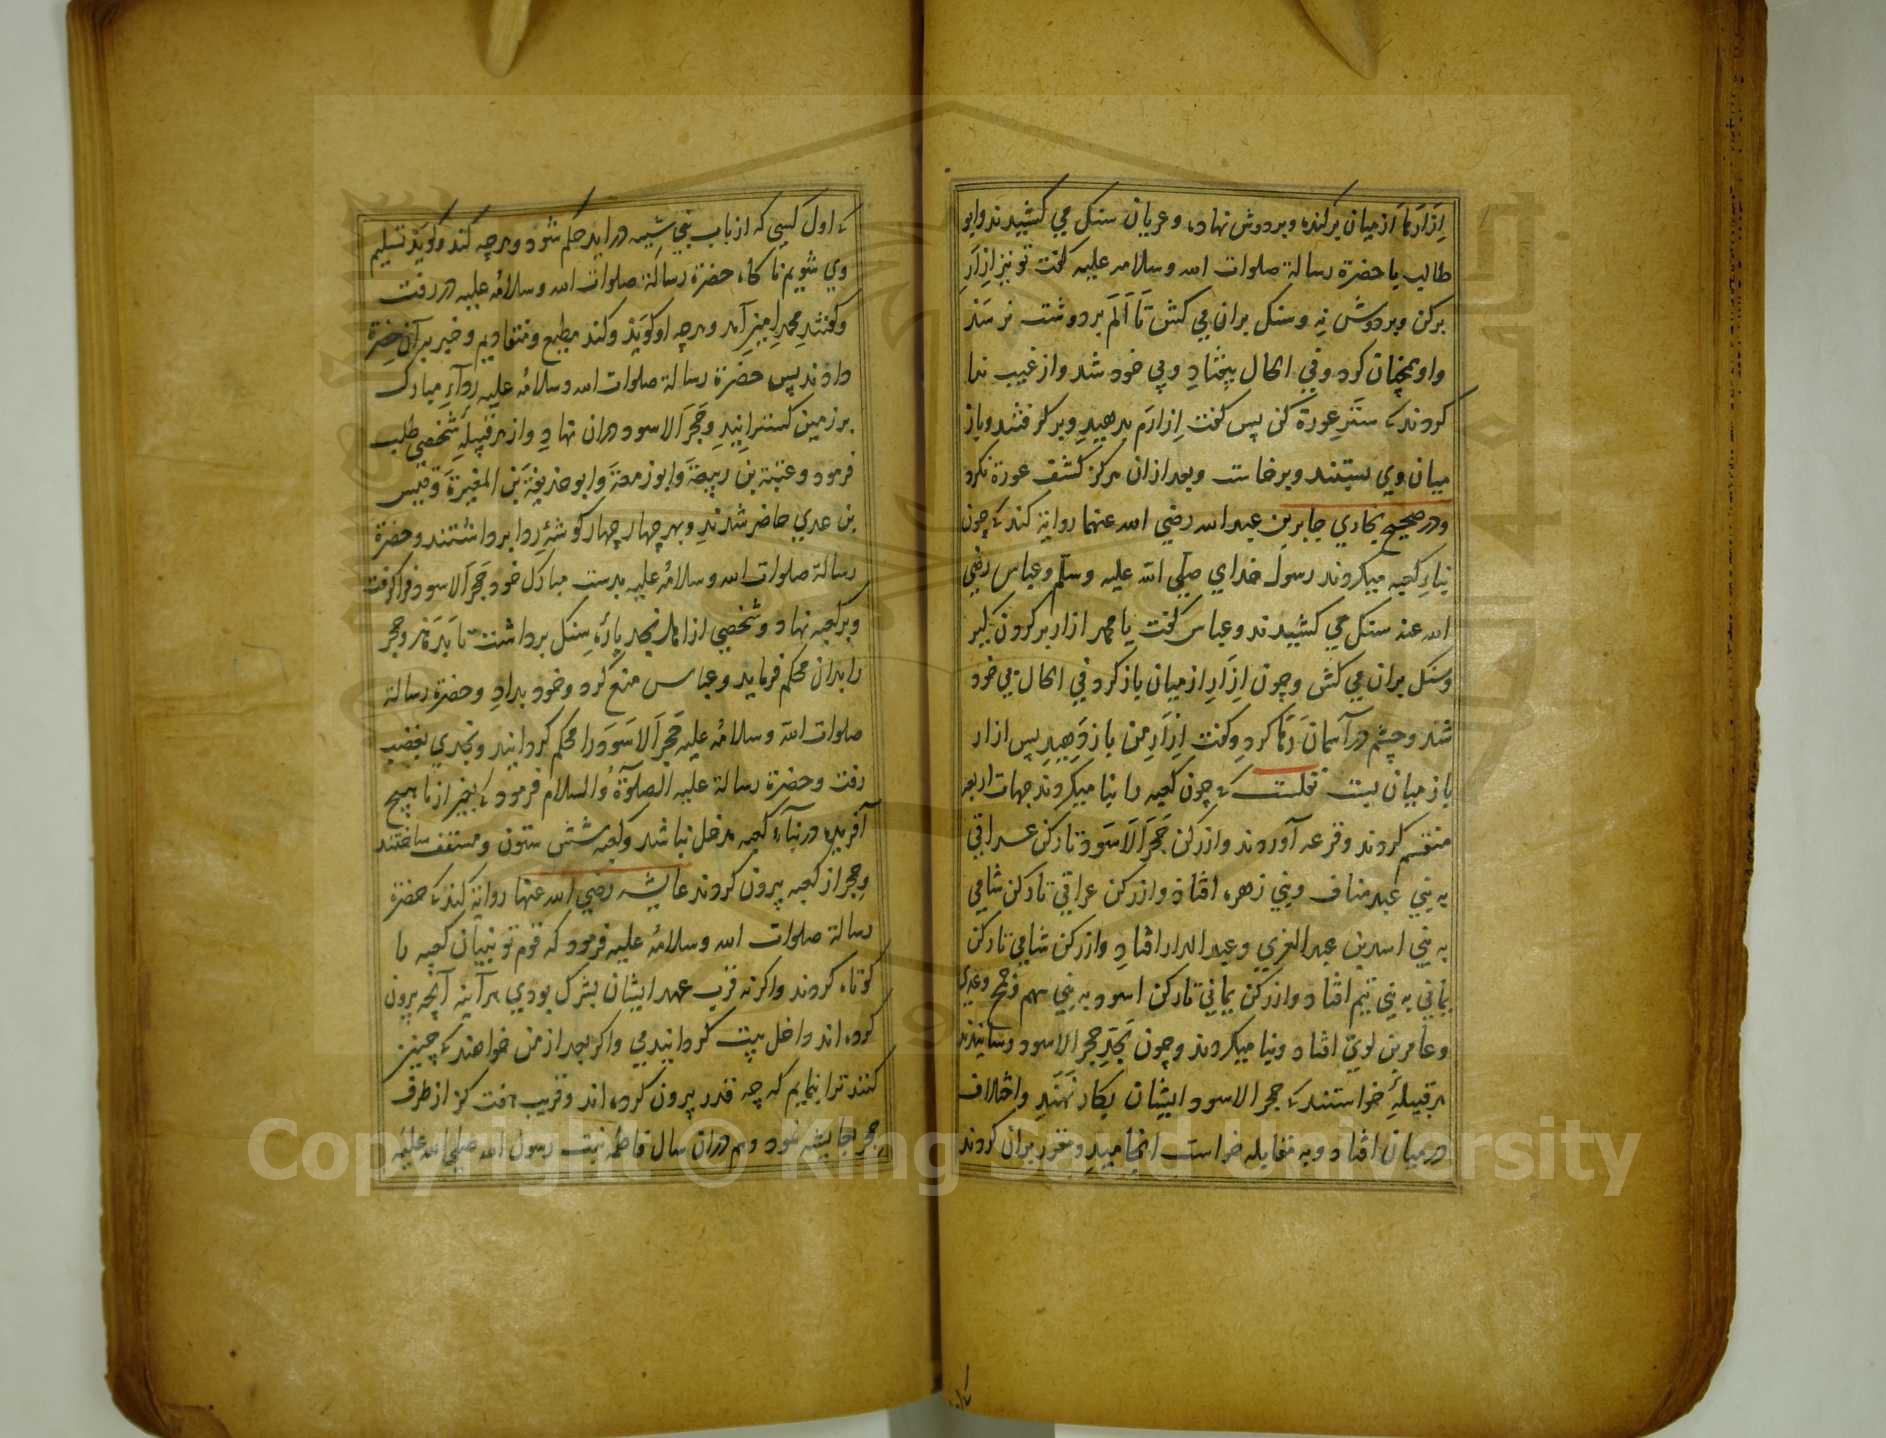 اِزَارَهَا از میان برکنده وبردوش نهاده وعریان سنک می کشیدند وابو
طالب با حضرة رسالة صلوات الله وسلامه علیه کفت تو نیز اِزَارِ
برکن وبردوش نِه وسنک بران می کش تَا اَلَم بردوشت نرسَد
واو همچنان کرد وفی الحال بیفتادِ وبی خود شد واز غیب ندا
کردند که سترِ عورة کن پس کفت اِزارَم بدهیدِ وبرکرفتند وباز
میان وی بستند وبرخاست وبعد ازان هرکز کشف عورة نکرد
ودر صحیح بخاری جابر بن عبدالله رضی الله عنهما روایة کند که چون
بناءِ کعبه میکردند رسول خدای صلی الله علیه وسلم وعباس رضی
الله عنه سنک می کشیدند وعباس کفت یا محمد ازار بر کردن کیر
وسنک بران می کش وچون اِزَارِ از میان باز کرد فی الحال بی خود
شد وچشم در آسمان کرد وکفت اِزَارِ من باز دهید پس ازار
باز میان بست نقلست که چون کعبه را بنا میکردند جهات اربعه
منقسم کردند وقرعه آوردند واز رکن حَجَرَ الاَسوَد تا رکن عراقی
به بنی عبد مناف وبنی زهره افتاد واز رکن عراقی تا رکن شامی
به بنی اسد بن عبد العزی وعبد الدار افتادِ واز رکن شامی تا رکن
یمانی به بنی تیم افتاد واز رکن یمانی تا رکن اسود به بنی سهم وجمح وعدی
وعامر بن لویّ افتاد وبنا میکردند وچون بَحَدِ حجر الاسود رسانیدند
هر قبیلهٔ خواستند که حجر الاسود ایشان بکار نَهَنَدِ واختلاف
درمیان افتاد وبه مقابله خواست انجامید ومقرر بران کردند
که اول کسی که از باب بنی شیبه دراید حکم شود وهرچه کند وکوید تسلیم
وی شویم ناکاه حضرة رسالة صلوات الله وسلامهُ علیه در رفت
وکفتند محمدِ امین آمد وهرچه او کوید وکند مطیع ومنقادیم وخبر بران حضرة
دادند پس حضرة رسالة صلوات الله وسلامهُ علیه ردآءِ مبارک
بر زمین کسترانیدِ وحَجَرَ الاسود دران نهادِ واز هر قبیلهٔ شخصی طلب
فرمود وعتبة بن ربیعَة وابو زمعَة وابو حذیفة بَن المغیرَة وقیس
بن عدی حاضر شدندِ وهر چهار چهار کوشهٔ رِدا برداشتند وحضرة
رسالة صلوات الله وسلامهُ علیه بدست مبارک خود حَجَرَ الاسود فرا کرفت
وبر کعبه نهاد وشخصی از اهل نجد پارهٔ سنک برداشت تا بدهد وحجر
را بدان محکم فرماید وعباس منع کرد وخود بدادِ وحضرة رسالة
صلوات الله وسلامهُ علیه حَجَرَ الاَسوَد را محکم کردانید ونجدی بغضب
رفت وحضرة رسالة علیه الصلوٰةُ والسلام فرمود که بغیر از ما هیچ
آفریده در بناءِ کعبه مدخل نباشد وکعبه شش ستون ومسقف ساختند
وحِجر از کعبه بیرون کردند عایشه رضی الله عنها روایة کند که حضرة
رسالة صلوات الله وسلامهُ علیه فرمود که قوم تو بنیان کعبه را
کوتاه کردند واکر نه قرب عهد ایشان بشرک بودی هرآینه آنچه بیرون
کرده اند داخل بیت کردانیدمی واکر بعد از من خواهند که چنین
کنند ترا نمایم که چه قدر بیرون کرده اند وقریب هفت کز از طرف
حِجر بجا شود وهم دران سال فاطمه بنت رسول الله صلی الله علیه